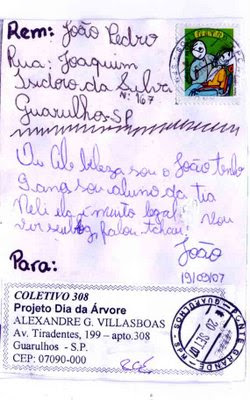 Rem: João Pedro
Rua: Joaquim
Isidoro da Silva
Nº 167
Guarulhos-SP
beleza sou o João tenho
9 anos sou aluno da tia
Neli ela é muito legal vou
ser seu falou tchau
João
19/09/07
Para:
COLETIVO 308
Projeto Dia da Árvore
ALEXANDRE G. VILLASBOAS
Av. Tiradentes, 199 – apto.308
Guarulhos - S.P.
CEP: 07090-000
PONTE GRANDE
GUARULHOS
20 SET 07